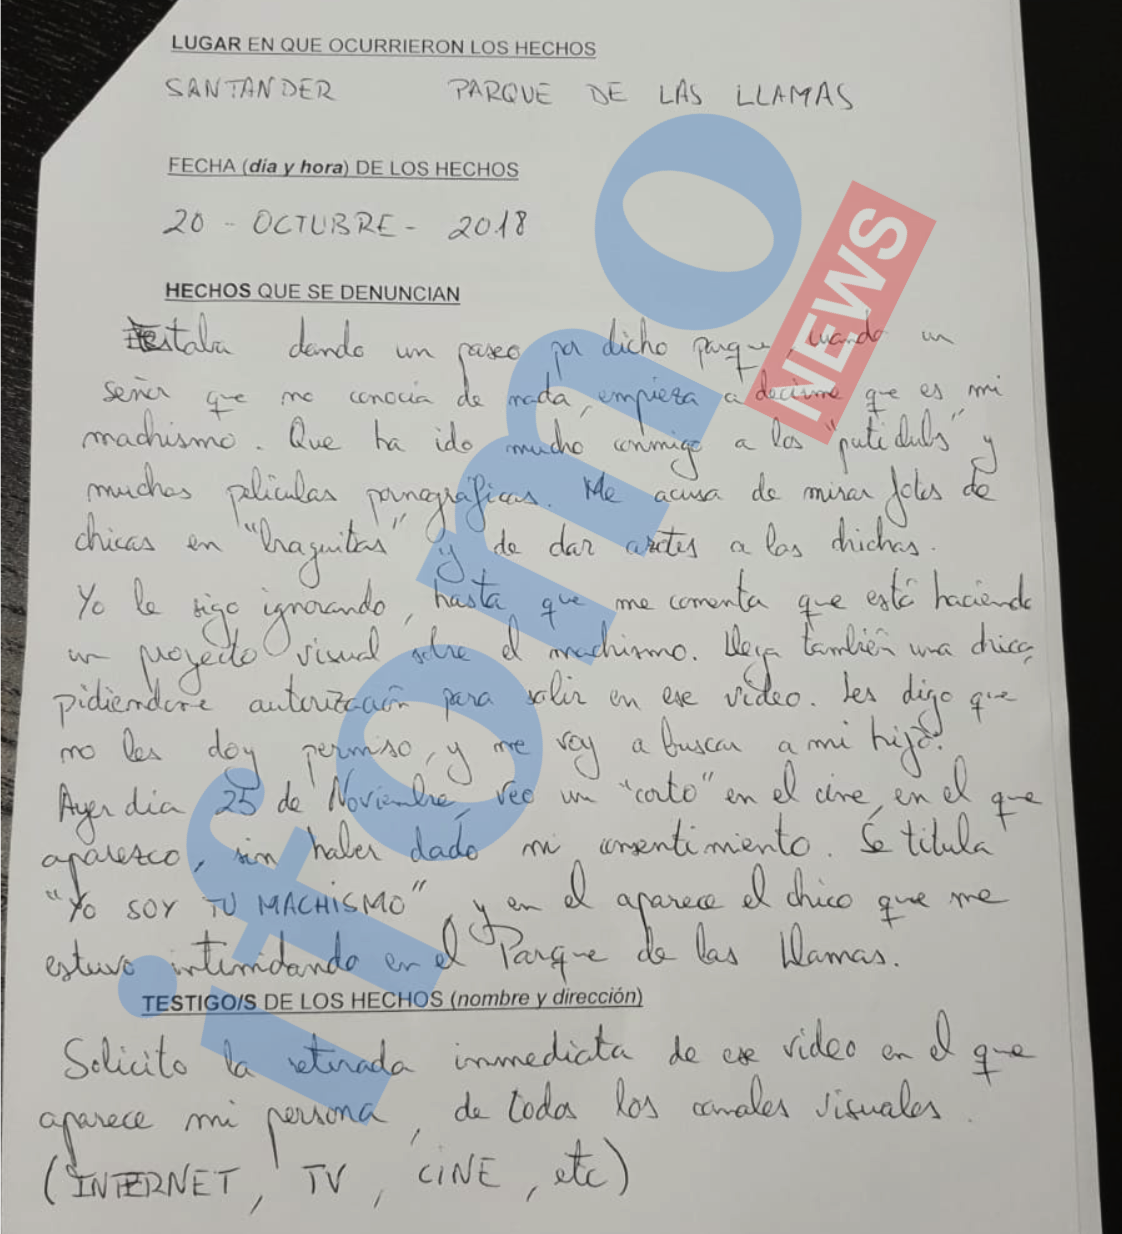 LUGAR EN QUE OCURRIERON LOS HECHOS
SANTANDER PARQUE DE LAS LLAMAS
FECHA (día y hora) DE LOS HECHOS
20 - OCTUBRE - 2018
HECHOS QUE SE DENUNCIAN
Estaba dando un paseo por dicho parque, cuando un
señor que no conocía de nada, empieza a decirme que es mi
machismo. Que ha ido mucho conmigo a los "puticlubs" y
muchas películas pornográficas. Me acusa de mirar fotos de
chicas en "braguitas" y de dar azotes a las chichas.
Yo le sigo ignorando, hasta que me comenta que está haciendo
un proyecto visual sobre el machismo. Llega también una chica,
pidiendome autorización para salir en ese vídeo. Les digo que
no les doy permiso, y me voy a buscar a mi hijo.
Ayer día 25 de Noviembre, veo un "corto" en el cine, en el que
aparezco, sin haber dado mi consentimiento. Se titula
"Yo SOY TU MACHISMO", y en el aparece el chico que me
estuvo intimidando en el Parque de las Llamas.
TESTIGO/S DE LOS HECHOS (nombre y dirección)
Solicito la retirada immediata de ese video en el que
aparece mi persona, de todos los canales visuales.
(INTERNET, TV, CINE, etc)
ifomo
NEWS